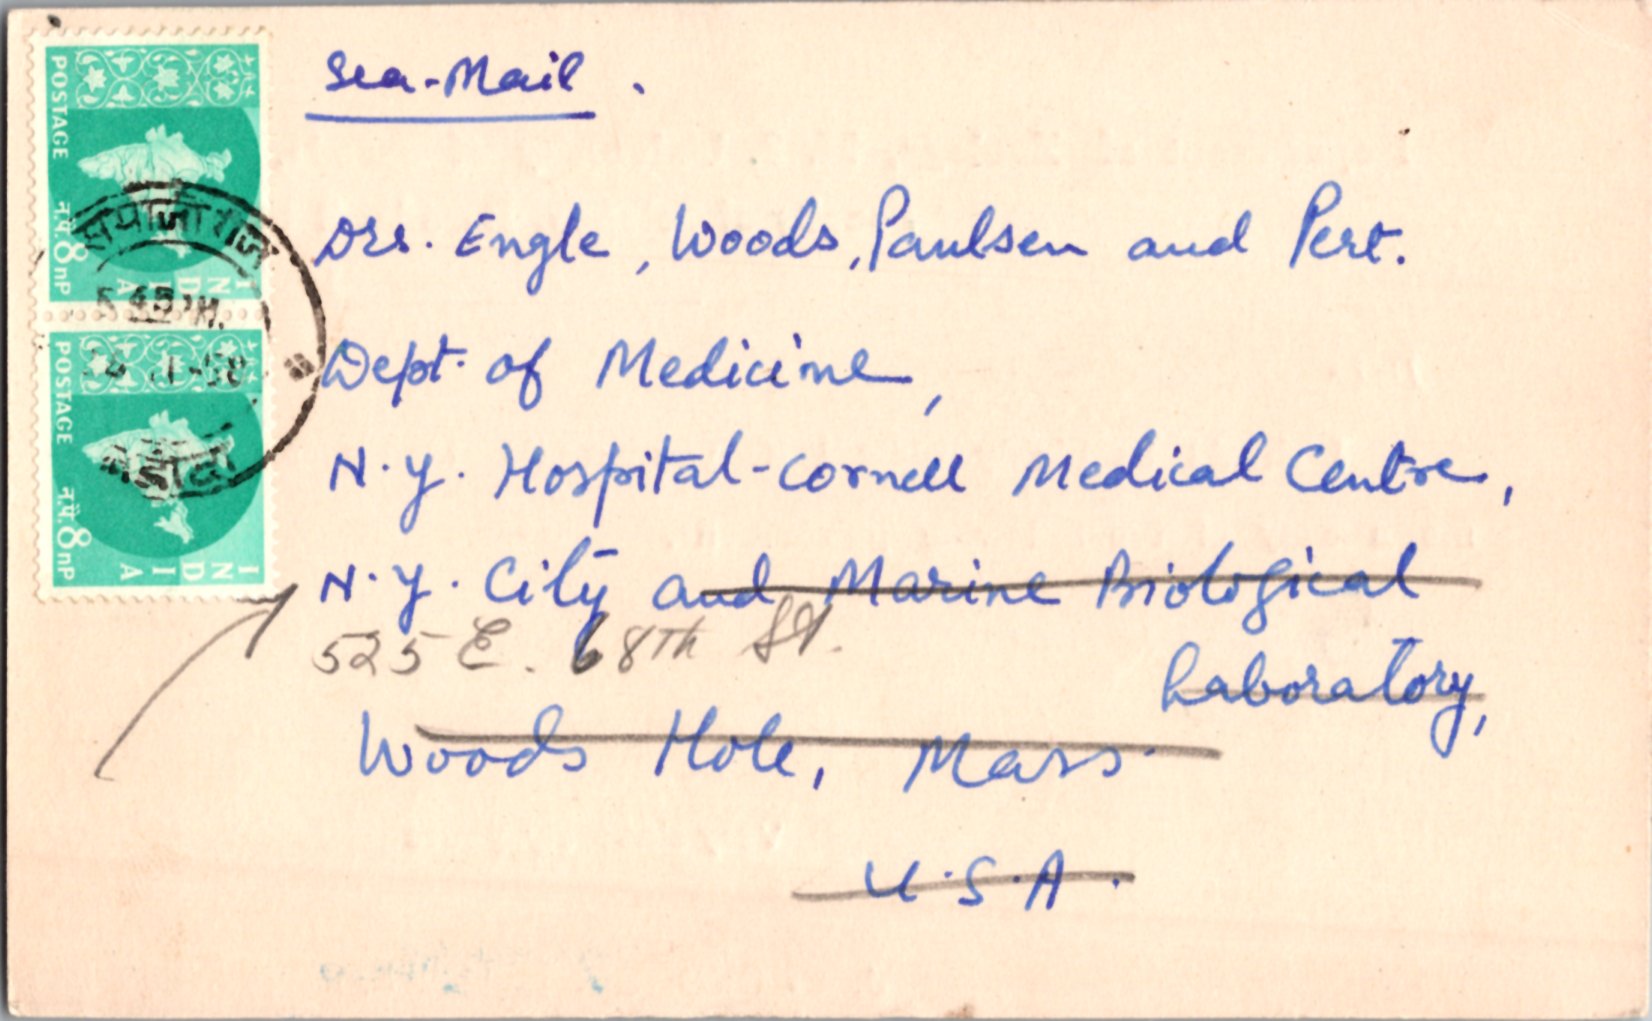 Sea-Mail.
Drs. Engle, Woods, Paulsen and Pert.
Dept. of Medicine,
N.Y. Hospital-Cornell Medical Centre,
N.Y. City and Marine Biological
525 E. 68th St.
Laboratory,
Woods Hole, Mass.
U.S.A.
POSTAGE
न.पै. 8 nP
INDIA
5 45 PM.
POSTAGE
न.पै. 8 nP
INDIA